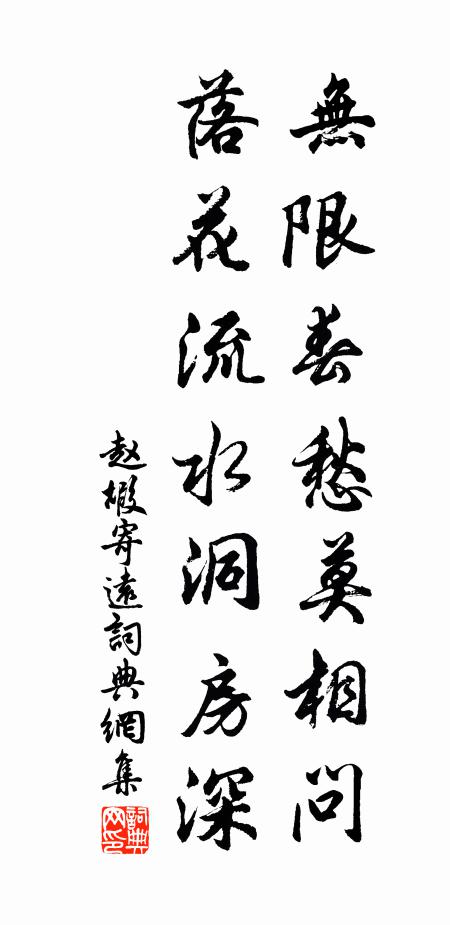 無限春愁莫相問
落花流水洞房深
赵嘏寄遠詞典網集
詞典网印